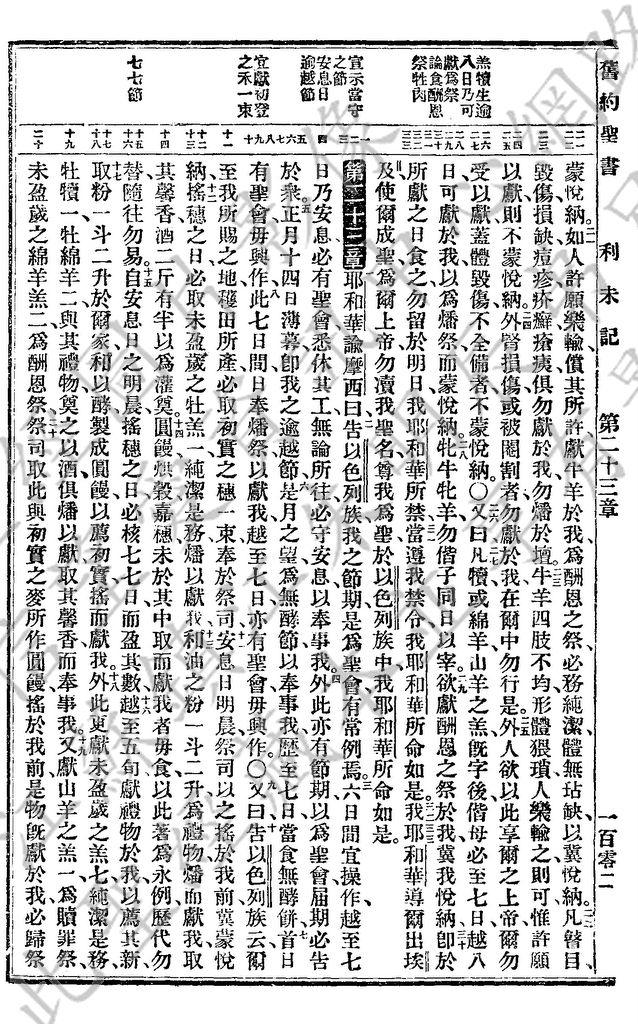 舊約聖書 利未記 第二十三章 一百零二
羔犢生逾
八日乃可
獻爲祭
論食酬恩
祭牲肉
宣示當守
之節
安息日
逾越節
宜獻初登
之禾一束
七七節
蒙悅納如人許願樂輸償其所許獻牛羊於我爲酬恩之祭必務純潔體無玷缺以冀悅納凡瞽目
毀傷損缺痘疹疥癬瘡痍俱勿獻於我勿燔於壇牛羊四肢不均形體猥瑣人樂輸之則可惟許願
以獻則不蒙悅納外腎損傷或被閹割者勿獻於我在爾中勿行是外人欲以此享爾之上帝爾勿
受以獻蓋體毀傷不全備者不蒙悅納〇又曰凡犢或綿羊山羊之羔旣字後偕母必至七日越八
日可獻於我以爲燔祭而蒙悅納牝牛牝羊勿偕子同日以宰欲獻酬恩之祭於我冀我悅納卽於
所獻之日食之勿留於明日我耶和華所禁當遵我禁令我耶和華所命如是我耶和華導爾出埃
及使爾成聖爲爾上帝勿瀆我聖名尊我爲聖於以色列族中我耶和華所命如是
第二十三章 耶和華諭摩西曰告以色列族我之節期是爲聖會有常例焉六日間宜操作越至七
日乃安息必有聖會悉休其工無論所往必守安息以奉事我外此亦有節期以爲聖會屆期必告
於衆正月十四日薄暮卽我之逾越節是月之望爲無酵節以奉事我歷至七日當食無酵餅首日
有聖會毋興作此七日間日奉燔祭以獻我越至七日亦有聖會毋興作〇又曰告以色列族云爾
至我所賜之地穫田所產必取初實之穗一束奉於祭司安息日明晨祭司以之搖於我前冀蒙悅
納搖穗之日必取未盈歲之牡羔一純潔是務燔以獻我和油之粉一斗二升爲禮物燔而獻我取
其馨香酒二斤有半以爲灌奠圓饅烘穀嘉穗未於其中取而獻我者毋食以此著爲永例歷代勿
替隨往勿易自安息日之明晨搖穗之日必核七七日而盈其數越至五旬獻禮物於我以薦其新
取粉一斗二升於爾家和以酵製成圓饅以薦初實搖而獻我外此更獻未盈歲之羔七純潔是務
牡犢一牡綿羊二與其禮物奠之以酒俱燔以獻取其馨香而奉事我又獻山羊之羔一爲贖罪祭
未盈歲之綿羊羔二爲酬恩祭祭司取此與初實之麥所作圓饅搖於我前是物旣獻於我必歸祭